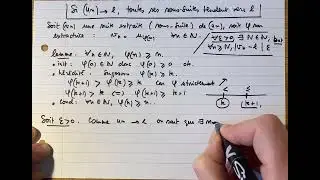 Si (Un) → l, toutes ses sous-suites tendent vers l
Soit (vn) une suite extraite (sous-suite) de (Un), soit φ son
extractrice : vn = uφ(n). but
∀ε>0 ∃N∈ℕ,
∀n≥N, |vn - l| ≤ ε
lemme : ∀n∈ℕ, φ(n) ≥ n.
• init : φ(0)∈ℕ donc φ(0) ≥ 0 ok.
• hérédité : supposons φ(k) ≥ k
φ(k+1) > φ(k) ≥ k car φ strictement ↗
φ(k+1) > k ⇔ φ(k+1) ≥ k+1
< ≤
k k+1
• concl : ∀n∈ℕ, φ(n) ≥ n.
Soit ε>0. Comme un → l on sait que ∃